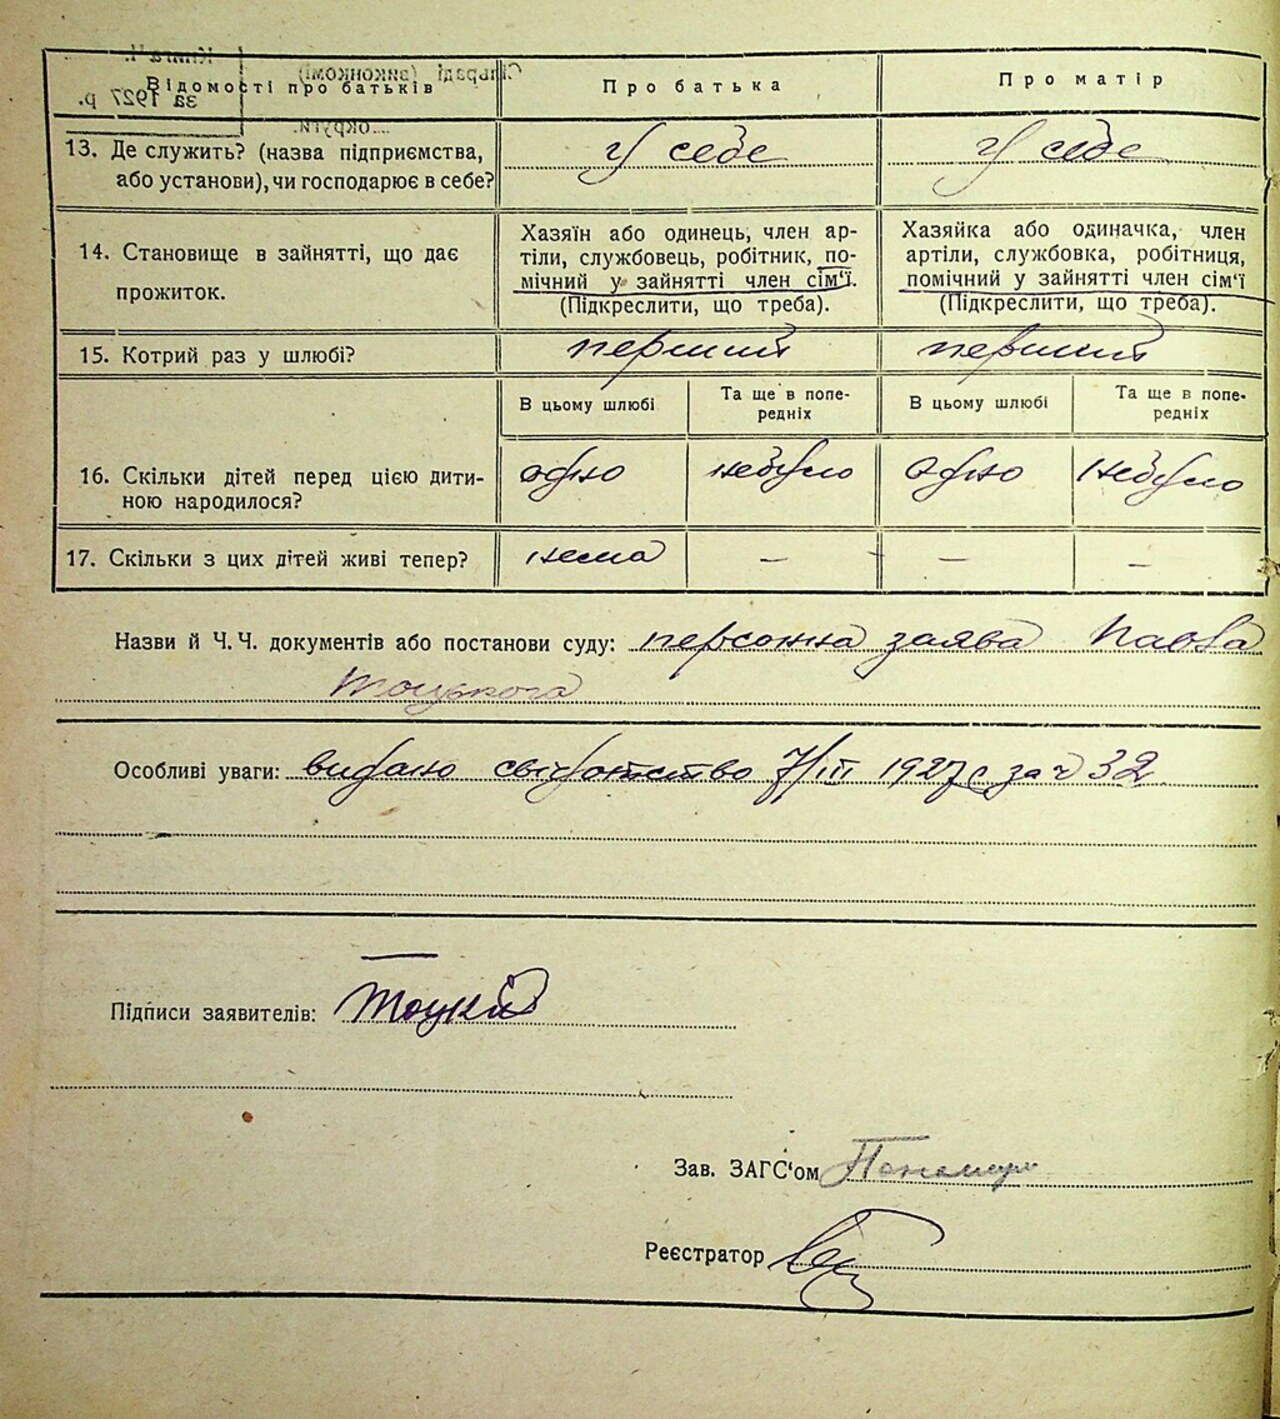 Відомості про батьків
Про батька
Про матір
13. Де служить? (назва підприємства,
або установи), чи господарює в себе?
У себе
У себе
14. Становище в зайнятті, що дає
прожиток.
Хазяїн або одинець, член ар-
тілі, службовець, робітник, по-
мічний у зайнятті член сім'ї.
(Підкреслити, що треба).
Хазяйка або одиначка, член
артіли, службовка, робітниця,
помічний у зайнятті член сім'ї
(Підкреслити, що треба).
15. Котрий раз у шлюбі?
перший
перший
В цьому шлюбі
Та ще в попе-
редніх
В цьому шлюбі
Та ще в попе-
редніх
16. Скільки дітей перед цією дити-
ною народилося?
одно
небуло
одно
небуло
17. Скільки з цих дітей живі тепер?
нема
—
—
—
Назви й Ч. Ч. документів або постанови суду: персожна заява Павла
Тоцького
Особливі уваги: видано свідотство 7/III 1927 р за ч 32
Підписи заявителів: Тоцкий
Зав. ЗАГС'ом
Реєстратор
Сільраді (виконкомі)
округи.
Книга Ч.
за 1927 р.